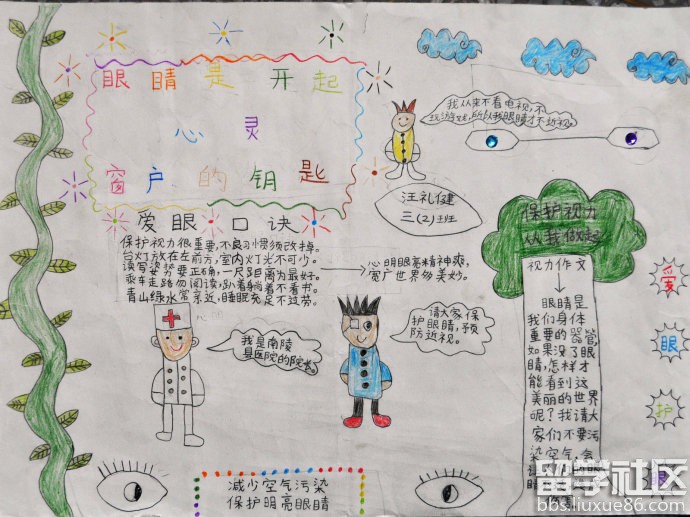 眼睛是开起
心灵
窗户的钥匙
我从来不看电视,不
玩游戏,所以我眼睛才不近视。
汪礼健
三(2)班
爱眼口诀
保护视力很重要,不良习惯须改掉。
台灯放在左前方,室内灯光不可少。
读写姿势要正确,一尺距离为最好。
乘车走路勿阅读,趴着躺着不看书。
青山绿水常亲近,睡眠充足不过劳。
心明眼亮精神爽,
宽广世界多美妙。
我是南陵
县医院的院长。
请大家保
护眼睛,预
防近视。
保护视力
从我做起
视力作文
眼睛是
我们身体
重要的器官,
如果没了眼
睛,怎样才
能看到这
美丽的世界
呢?我请大
家们不要污
染空气,会
的眼
爱
眼
护
眼
减少空气污染
保护明亮眼睛
留学社区
bbs.liuxue86.com